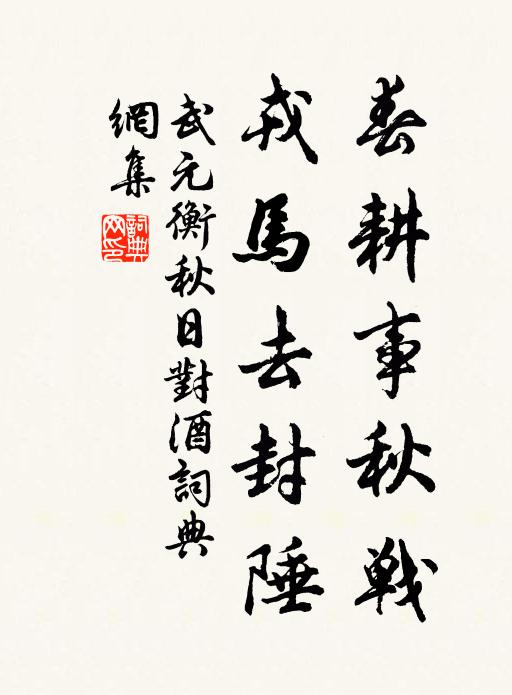 春耕事秋戰
戎馬去封陲
武元衡秋日對酒詞典
網集
詞典網印